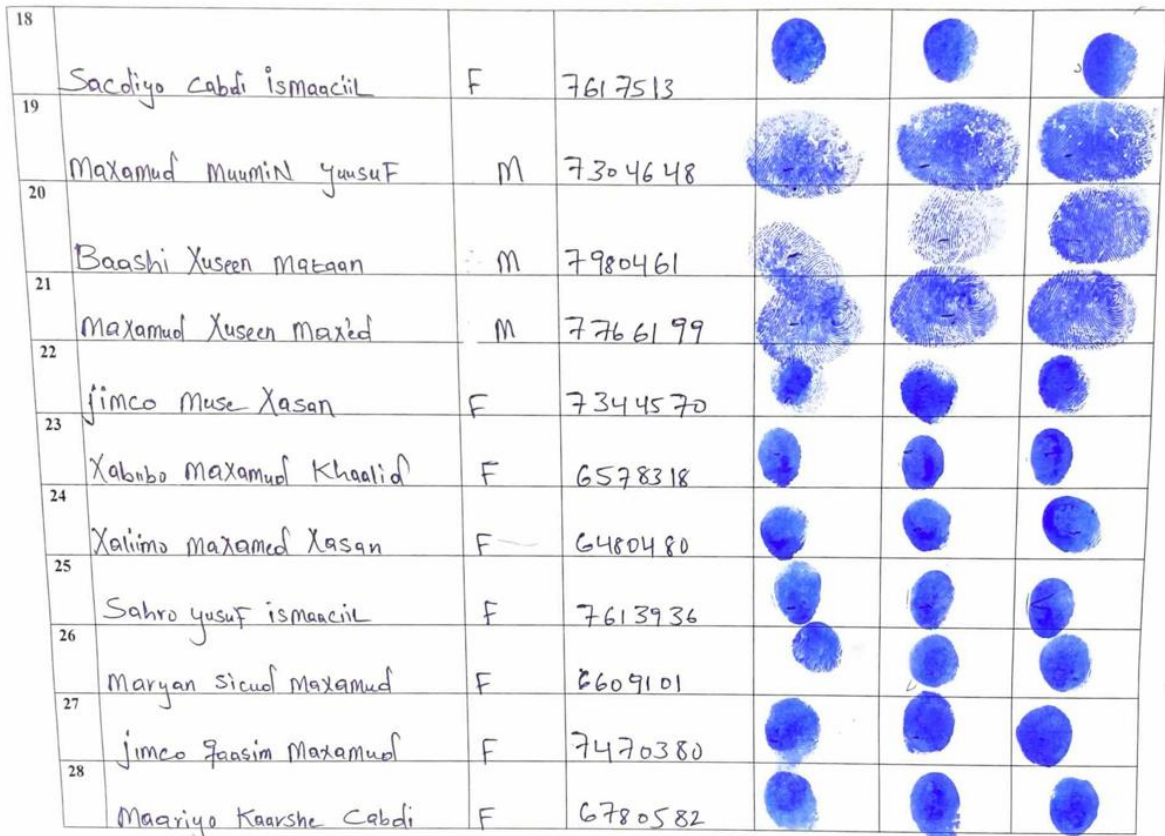 18 Sacdiyo Cabdi ismaaciiL F 7617513
19 Maxamud MuumiN yuusuF M 7304648
20 Baashi Xuseen Mataan M 7980461
21 Maxamud Xuseen Max'ed M 7766199
22 jimco Muse Xasan F 7344570
23 Xabubo Maxamud Khaalid F 6578318
24 Xaliimo Maxamed Xasan F 6480480
25 Sahro yusuF ismaaciiL F 7613936
26 Maryan Sicud Maxamud F 6609101
27 jimco qaasim Maxamud F 7470380
28 Maariyo Kaarshe Cabdi F 6780582